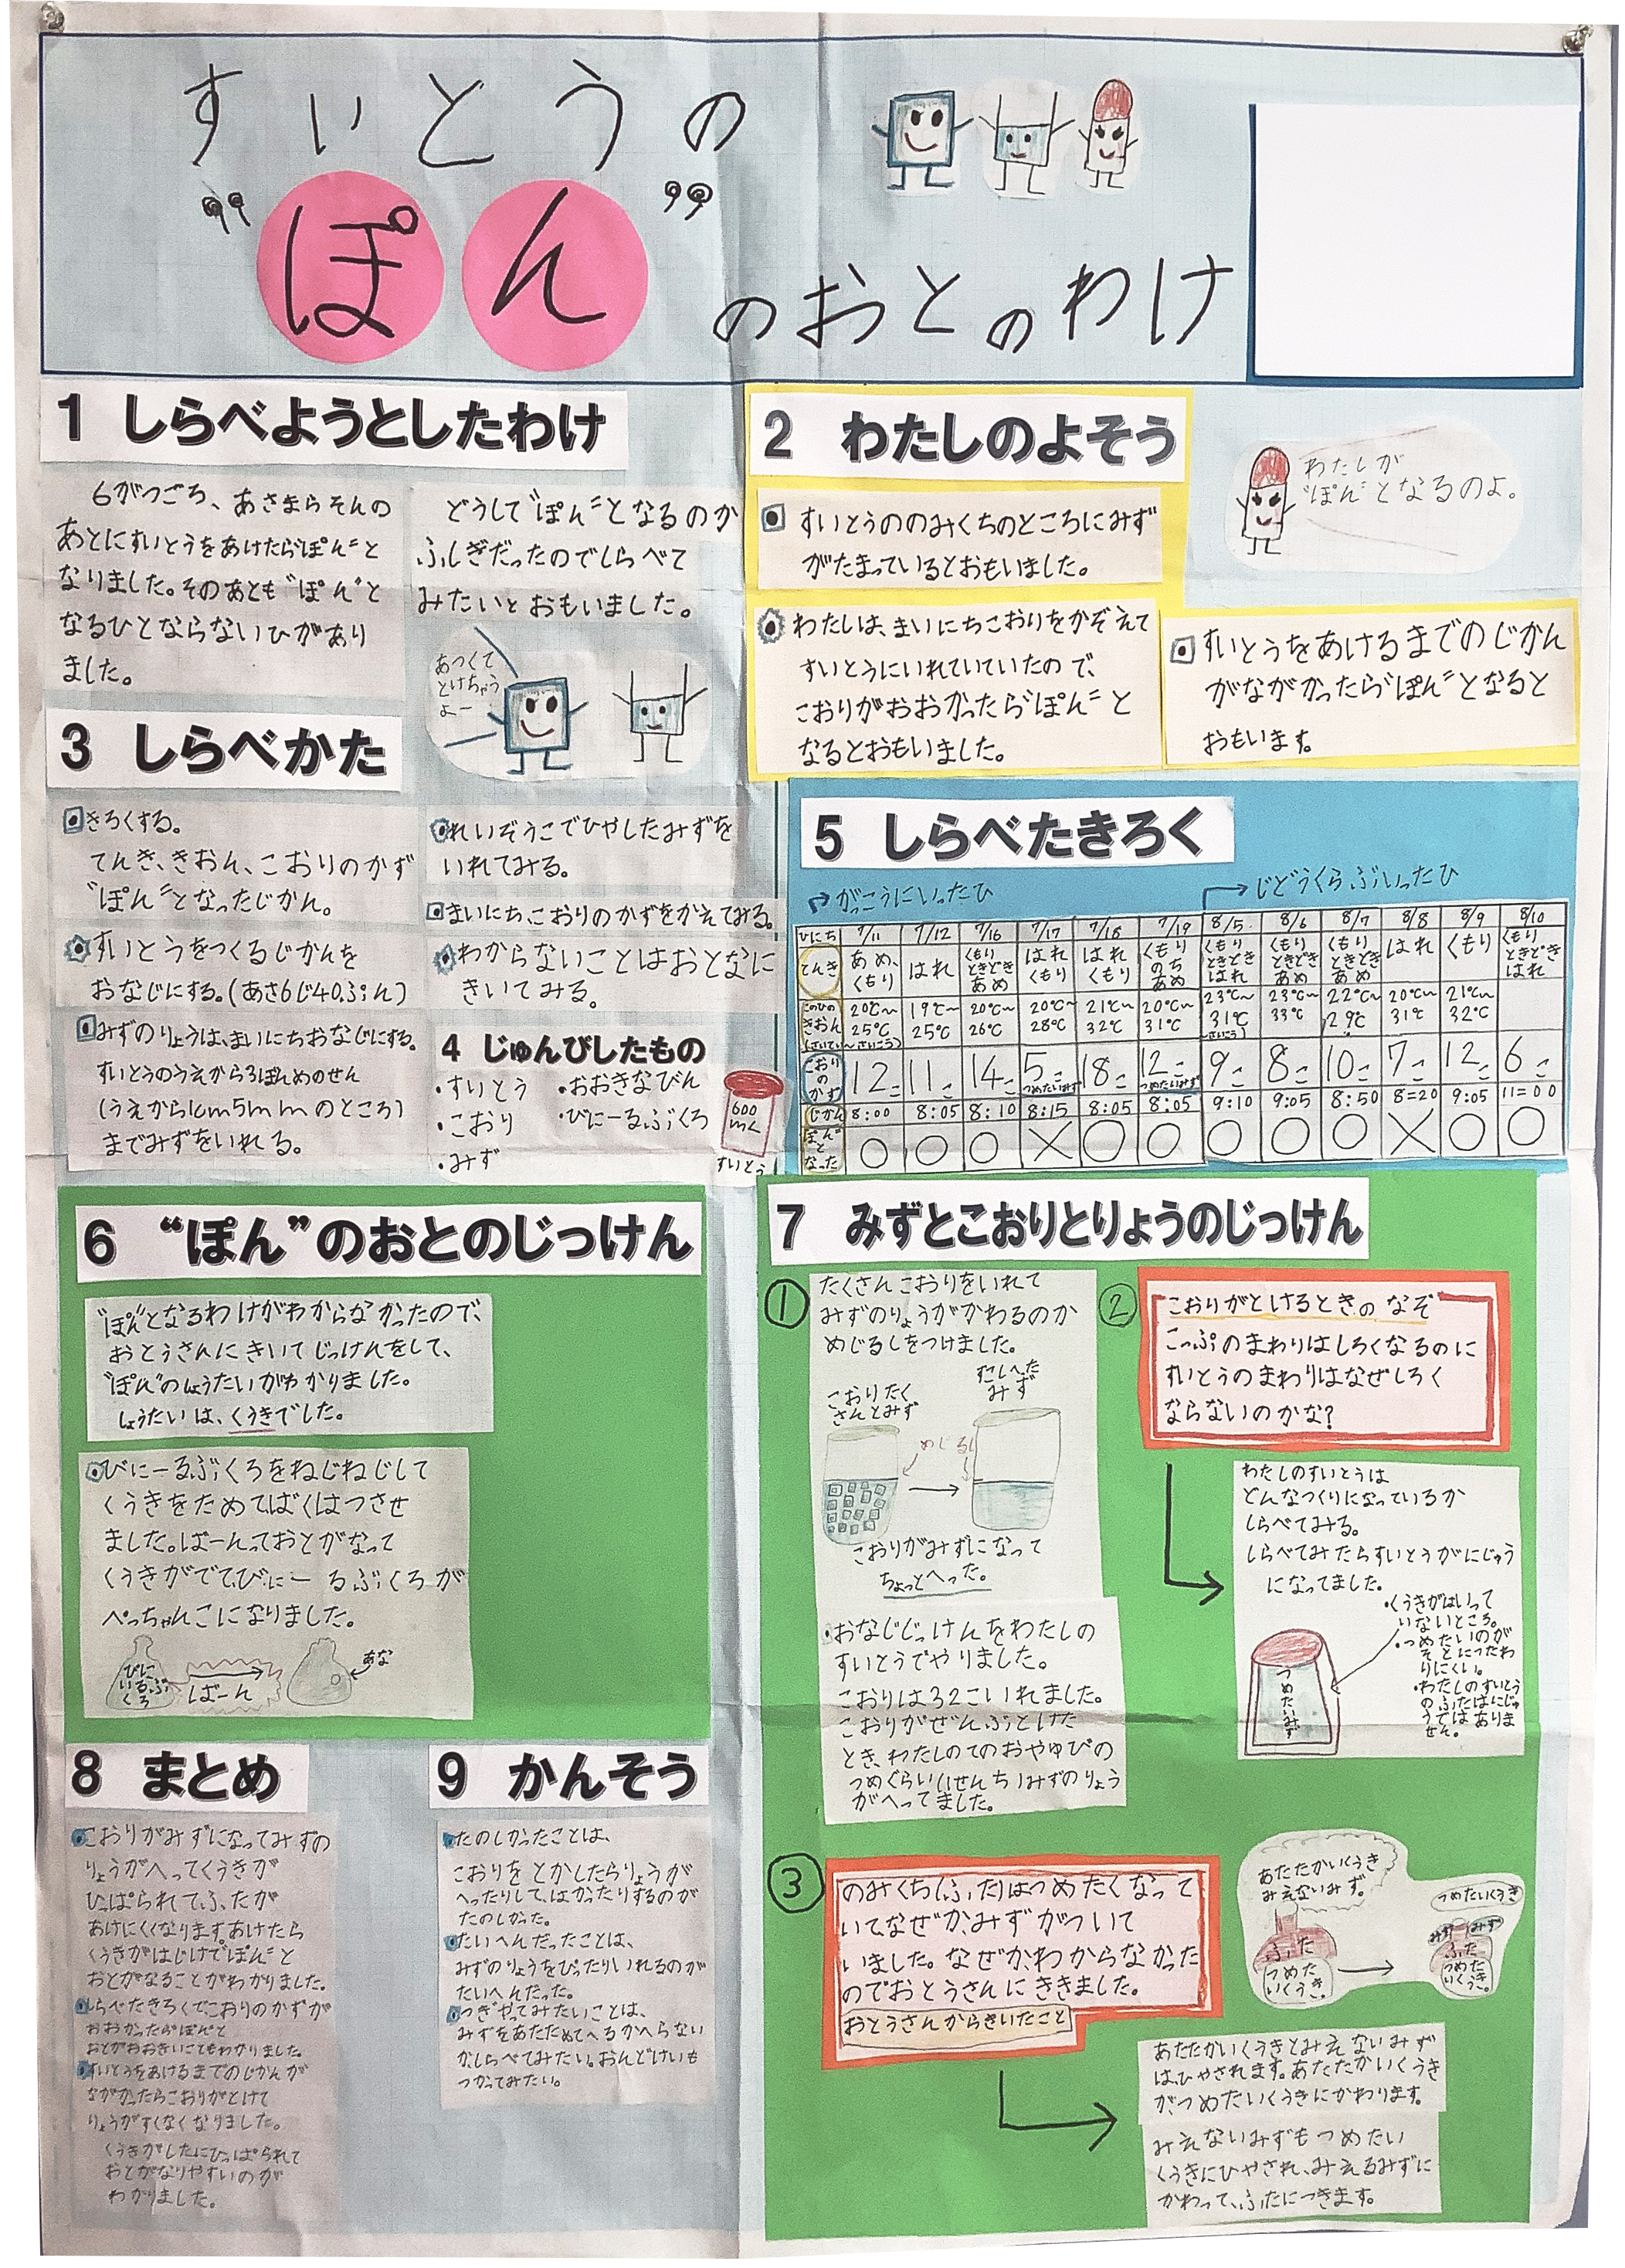 すいとうの
“ぽん”
のおとのわけ
1 しらべようとしたわけ
6がつごろ、あさまらそんの
あとにすいとうをあけたら“ぽん”と
なりました。そのあとも“ぽん”と
なるひとならないひがあり
ました。
どうして“ぽん”となるのか
ふしぎだったのでしらべて
みたいとおもいました。
あつくて
とけちゃう
よー
2 わたしのよそう
すいとうののみくちのところにみず
がたまっているとおもいました。
わたしは、まいにちこおりをかぞえて
すいとうにいれていていたので、
こおりがおおかったら“ぽん”と
なるとおもいました。
わたしが
“ぽん”となるのよ。
すいとうをあけるまでのじかん
がながかったら“ぽん”となると
おもいます。
3 しらべかた
きろくする。
てんき、きおん、こおりのかず
“ぽん”となったじかん。
すいとうをつくるじかんを
おなじにする。(あさ6じ40ぷん)
みずのりょうは、まいにちおなじにする。
すいとうのうえから3ぼんめのせん
(うえから1cm5mmのところ)
までみずをいれる。
れいぞうこでひやしたみずを
いれてみる。
まいにち、こおりのかずをかえてみる。
わからないことはおとなに
きいてみる。
4 じゅんびしたもの
・すいとう
・こおり
・みず
・おおきなびん
・びにーるぶくろ
600
mL
すいとう
5 しらべたきろく
がっこうにいったひ
じどうくらぶいったひ
ひにち 7/11 7/12 7/16 7/17 7/18 7/19 8/5 8/6 8/7 8/8 8/9 8/10
てんき あめ、くもり はれ くもりときどきあめ はれくもり はれくもり くもりのちあめ くもりときどきはれ くもりときどきあめ くもりときどきあめ はれ くもり くもりときどきはれ
このひのきおん(さいてい〜さいこう) 20℃〜25℃ 19℃〜25℃ 20℃〜26℃ 20℃〜28℃ 21℃〜32℃ 20℃〜31℃ 23℃〜31℃ 23℃〜33℃ 22℃〜29℃ 20℃〜31℃ 21℃〜32℃
こおりのかず 12こ 11こ 14こ 5こつめたいみず 18こ 12こつめたいみず 9こ 8こ 10こ 7こ 12こ 6こ
じかん 8:00 8:05 8:10 8:15 8:05 8:05 9:10 9:05 8:50 8:20 9:05 11:00
ぽんとなった ○ ○ ○ × ○ ○ ○ ○ ○ × ○ ○
6 “ぽん”のおとのじっけん
“ぽん”となるわけがわからなかったので、
おとうさんにきいてじっけんをして、
“ぽん”のしょうたいがわかりました。
しょうたいは、くうきでした。
びにーるぶくろをねじねじして
くうきをためてばくはつさせ
ました。ばーんっておとがなって
くうきがでてびにーるぶくろが
ぺっちゃんこになりました。
びに
いるぶ
くろ
ばーん
あな
7 みずとこおりとりょうのじっけん
①
たくさんこおりをいれて
みずのりょうがかわるのか
めじるしをつけました。
こおりたく
さんとみず
すこしへった
みず
めじるし
こおりがみずになって
ちょっとへった。
・おなじじっけんをわたしの
すいとうでやりました。
こおりは32こいれました。
こおりがぜんぶとけた
とき、わたしのてのおやゆびの
つめぐらい(1せんち)みずのりょう
がへってました。
②
こおりがとけるときのなぞ
こっぷのまわりはしろくなるのに
すいとうのまわりはなぜしろく
ならないのかな?
わたしのすいとうは
どんなつくりになっているか
しらべてみる。
しらべてみたらすいとうがにじゅう
になってました。
・くうきがはいって
いないところ。
・つめたいのが
そとにつたわ
りにくい。
・わたしのすいとう
のふたはにじゅ
うではありま
せん。
つめたいみず
③
のみくち(ふた)はつめたくなって
いてなぜか、みずがついて
いました。なぜか、わからなかった
のでおとうさんにききました。
おとうさんからきいたこと
あたたかいくうき
みえないみず。
ふた
つめた
いくうき。
つめたいくうき
みず
みず
ふた
つめた
いくうき。
あたたかいくうきとみえないみず
は、ひやされます。あたたかいくうき
が、つめたいくうきにかわります。
みえないみずもつめたい
くうきにひやされ、みえるみずに
かわって、ふたにつきます。
8 まとめ
こおりがみずになってみずの
りょうがへってくうきが
ひっぱられて、ふたが
あけにくくなります。あけたら
くうきがはじけて“ぽん”と
おとがなることがわかりました。
しらべたきろくでこおりのかずが
おおかったらぽんと
おとがおおきいこともわかりました。
すいとうをあけるまでのじかんが
ながかったらこおりがとけて
りょうがすくなくなりました。
くうきがしたにひっぱられて
おとがなりやすいのが
わかりました。
9 かんそう
たのしかったことは、
こおりをとかしたらりょうが
へったりして、はかったりするのが
たのしかった。
たいへんだったことは、
みずのりょうをぴったりいれるのが
たいへんだった。
つぎやってみたいことは、
みずをあたためてへるかへらない
かしらべてみたい。おんどけいも
つかってみたい。